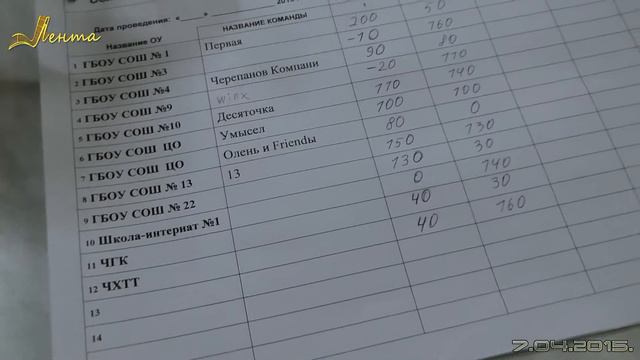 Лента
Дата проведения: «
Название ОУ НАЗВАНИЕ КОМАНДЫ
1 ГБОУ СОШ № 1 Первая 200 50
2 ГБОУ СОШ №3 -10 160
3 ГБОУ СОШ №4 Черепанов Компани 90 80
4 ГБОУ СОШ №9 winx -20 110
5 ГБОУ СОШ №10 Десяточка 110 140
6 ГБОУ СОШ ЦО Умысел 100 100
7 ГБОУ СОШ ЦО Олень и Friendы 80 0
8 ГБОУ СОШ № 13 13 150 130
9 ГБОУ СОШ № 22 130 30
10 Школа-интернат №1 0 140
11 ЧГК 40 30
12 ЧХТТ 40 160
13
14
7.04.2015.